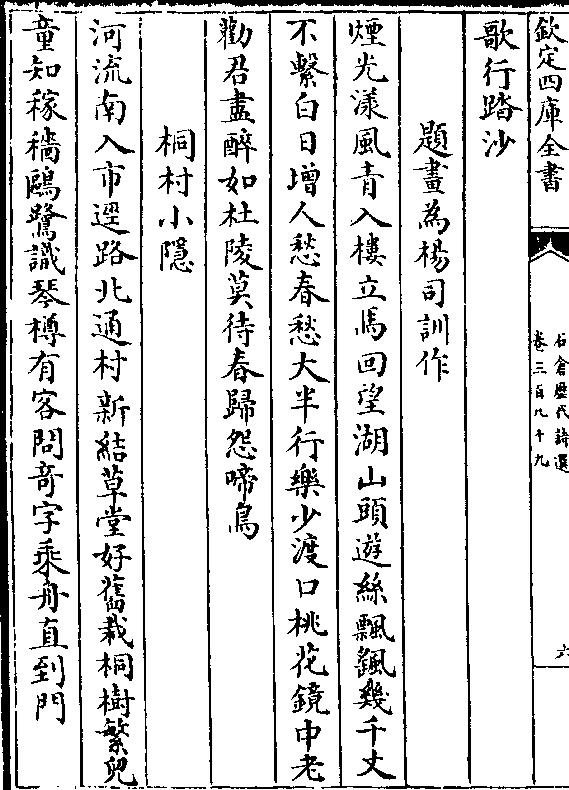 欽定四庫全書
石倉歷代詩選
卷三百八十九
六
歌行踏沙
題畫為楊司訓作
煙光漾風青入樓立馬回望湖山頭遊絲飄颻幾千丈
不繫白日增人愁春愁大半行樂少渡口桃花鏡中老
勸君盡醉如杜陵莫待春歸怨啼鳥
桐村小隱
河流南入市逕路北通村新結草堂好舊栽桐樹繁兒
童知稼穡鷗鷺識琴樽有客問竒字乘舟直到門